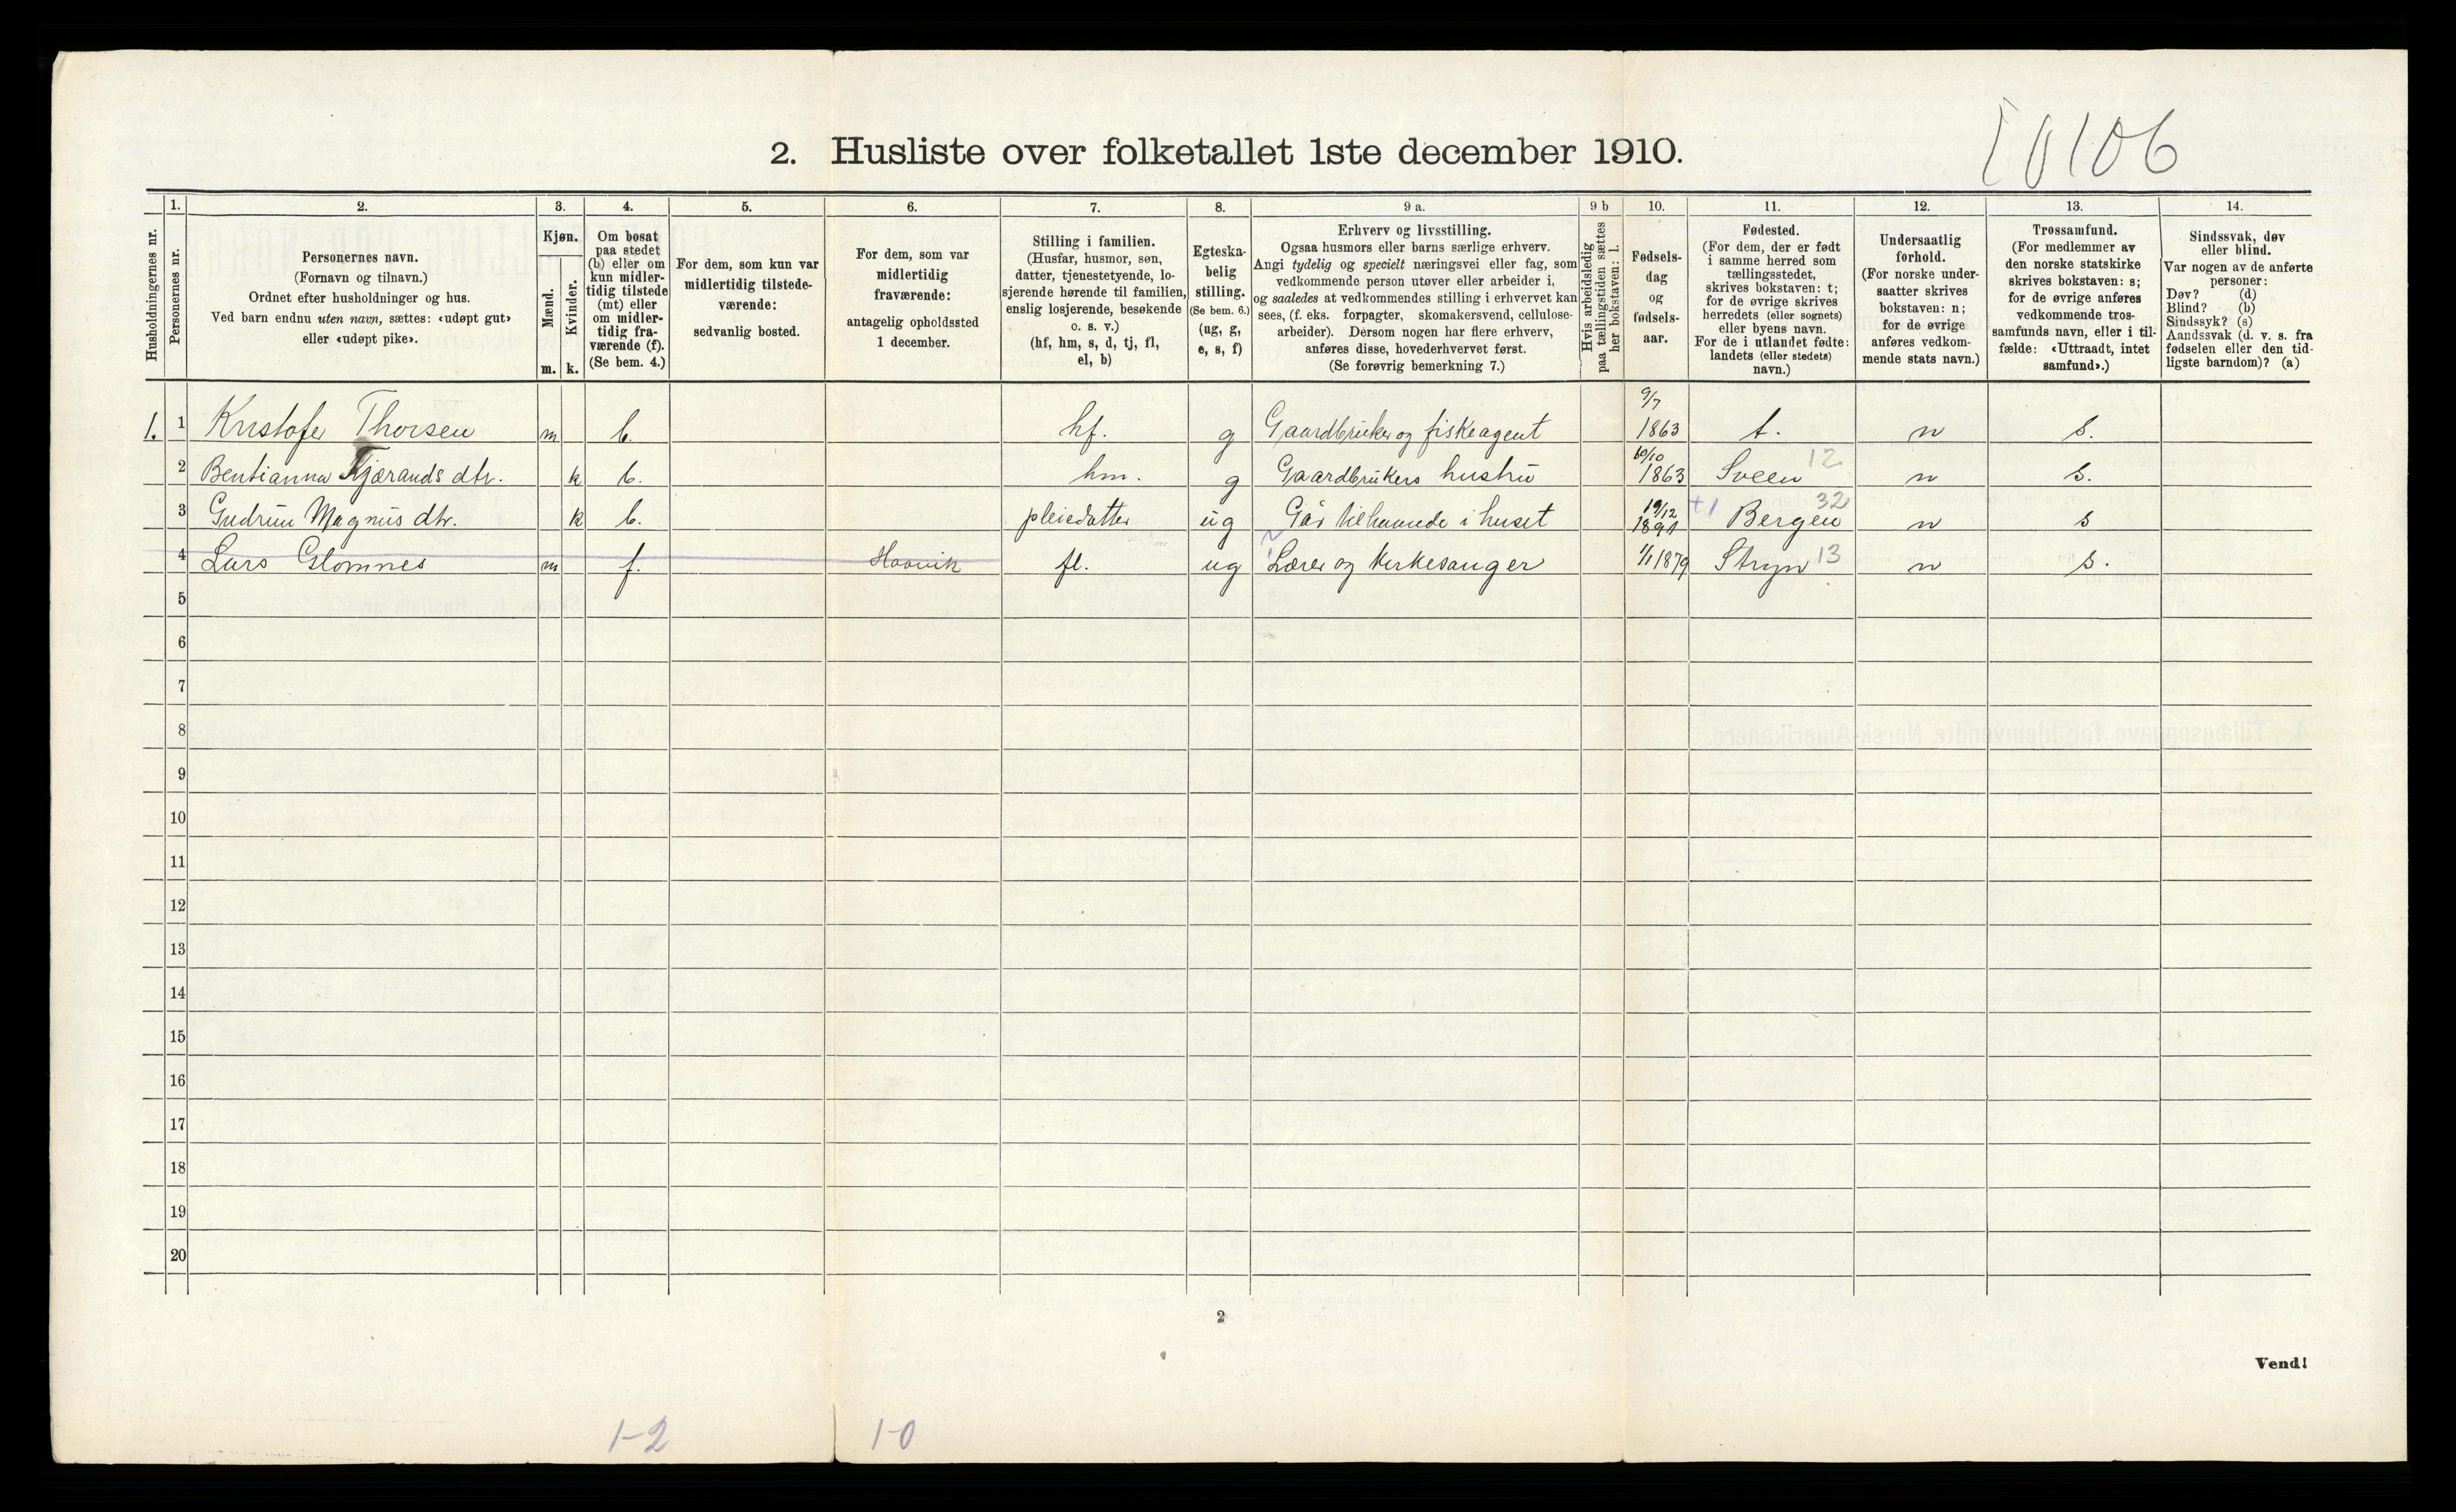 10106
2. Husliste over folketallet 1ste december 1910.
Husholdningernes nr.
1. Personernes nr.
2. Personernes navn.
(Fornavn og tilnavn.)
Ordnet efter husholdninger og hus.
Ved barn endnu uten navn, sættes: «udøpt gut»
eller «udøpt pike».
3. Kjøn.
Mænd. m.
Kvinder. k.
4. Om bosat
paa stedet
(b) eller om
kun midler-
tidig tilstede
(mt) eller
om midler-
tidig fra-
værende (f).
(Se bem. 4.)
5. For dem, som kun var
midlertidig tilstede-
værende:
sedvanlig bosted.
6. For dem, som var
midlertidig
fraværende:
antagelig opholdssted
1 december.
7. Stilling i familien.
(Husfar, husmor, søn,
datter, tjenestetyende, lo-
sjerende hørende til familien,
enslig losjerende, besøkende
o. s. v.)
(hf, hm, s, d, tj, fl,
el, b)
8. Egteska-
belig
stilling.
(Se bem. 6.)
(ug, g,
e, s, f)
9 a. Erhverv og livsstilling.
Ogsaa husmors eller barns særlige erhverv.
Angi tydelig og specielt næringsvei eller fag, som
vedkommende person utøver eller arbeider i,
og saaledes at vedkommendes stilling i erhvervet kan
sees, (f. eks. forpagter, skomakersvend, cellulose-
arbeider). Dersom nogen har flere erhverv,
anføres disse, hovederhvervet først.
(Se forøvrig bemerkning 7.)
9 b Hvis arbeidsledig
paa tællingstiden sættes
her bokstaven: l.
10. Fødsels-
dag
og
fødsels-
aar.
11. Fødested.
(For dem, der er født
i samme herred som
tællingsstedet,
skrives bokstaven: t;
for de øvrige skrives
herredets (eller sognets)
eller byens navn.
For de i utlandet fødte:
landets (eller stedets)
navn.)
12. Undersaatlig
forhold.
(For norske under-
saatter skrives
bokstaven: n;
for de øvrige
anføres vedkom-
mende stats navn.)
13. Trossamfund.
(For medlemmer av
den norske statskirke
skrives bokstaven: s;
for de øvrige anføres
vedkommende tros-
samfunds navn, eller i til-
fælde: «Uttraadt, intet
samfund».)
14. Sindssvak, døv
eller blind.
Var nogen av de anførte
personer:
Døv? (d)
Blind? (b)
Sindssyk? (s)
Aandssvak (d. v. s. fra
fødselen eller den tid-
ligste barndom)? (a)
1. 1 Kristofer Thorsen m b. hf. g Gaardbruker og fiskeagent 9/7 1863 t. n s.
2 Bentianna Kjærands dtr. k b. hm. g Gaardbrukers hustru 1863 Sveen 12 n s.
3 Gudrun Magnus dtr. k b. pleiedatter ug Går tilhaande i huset 19/12 1891 +1 Bergen 32 n s
4 Lars Glomnes m f. Haavik fl. ug Lærer og kirkesanger 1/1 1879 Stryn 13 n s.
5
6
7
8
9
10
11
12
13
14
15
16
17
18
19
20
2
Vend!
1-2 1-0